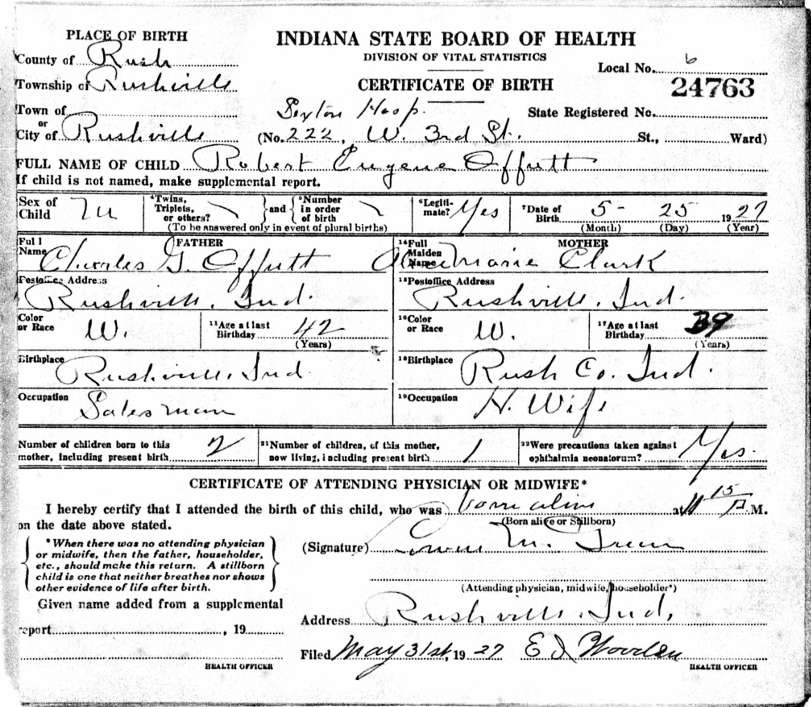 PLACE OF BIRTH
INDIANA STATE BOARD OF HEALTH
DIVISION OF VITAL STATISTICS
County of Rush
Local No. 6
Township of Rushville
CERTIFICATE OF BIRTH
24763
Town of
or
Sexton Hosp.
State Registered No.
City of Rushville (No. 222, W. 3rd St. St., Ward)
FULL NAME OF CHILD Robert Eugene Offutt
If child is not named, make supplemental report.
Sex of Child M
Twins, Triplets, or others? and Number in order of birth
(To be answered only in event of plural births)
Legitimate? Yes
Date of Birth 5- 25 1927
(Month) (Day) (Year)
FATHER
Full Name Charles G. Offutt
MOTHER
Full Maiden Name Marie Clark
Postoffice Address Rushville, Ind.
Postoffice Address Rushville, Ind.
Color or Race W.
Age at last Birthday 42 (Years)
Color or Race W.
Age at last Birthday 39 (Years)
Birthplace Rushville, Ind.
Birthplace Rush Co. Ind.
Occupation Salesman
Occupation H. Wife
Number of children born to this mother, including present birth 2
Number of children, of this mother, now living, including present birth 1
Were precautions taken against ophthalmia neonatorum? Yes.
CERTIFICATE OF ATTENDING PHYSICIAN OR MIDWIFE*
I hereby certify that I attended the birth of this child, who was born alive at 11 15 P. M.
on the date above stated.
(Born alive or Stillborn)
*When there was no attending physician
or midwife, then the father, householder,
etc., should make this return. A stillborn
child is one that neither breathes nor shows
other evidence of life after birth.
(Signature) M. Green
(Attending physician, midwife, householder*)
Given name added from a supplemental
report , 19
Address Rushville, Ind.
HEALTH OFFICER
Filed May 31st, 1927 E I Wooden
HEALTH OFFICER